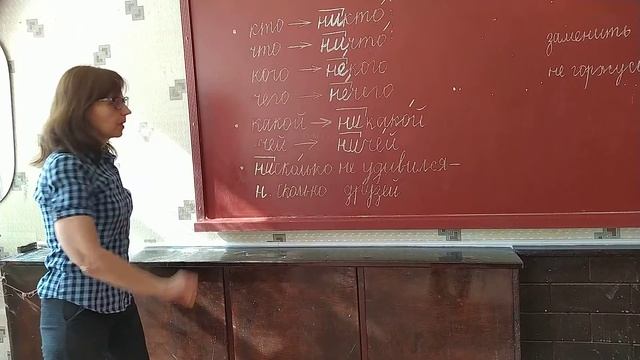 кто → никто́
что → ничто́
кого → не́кого
чего → не́чего
какой → никако́й
чей → ниче́й
ниско́лько не удивился —
н. сколько друзей
заменить
не горжусь